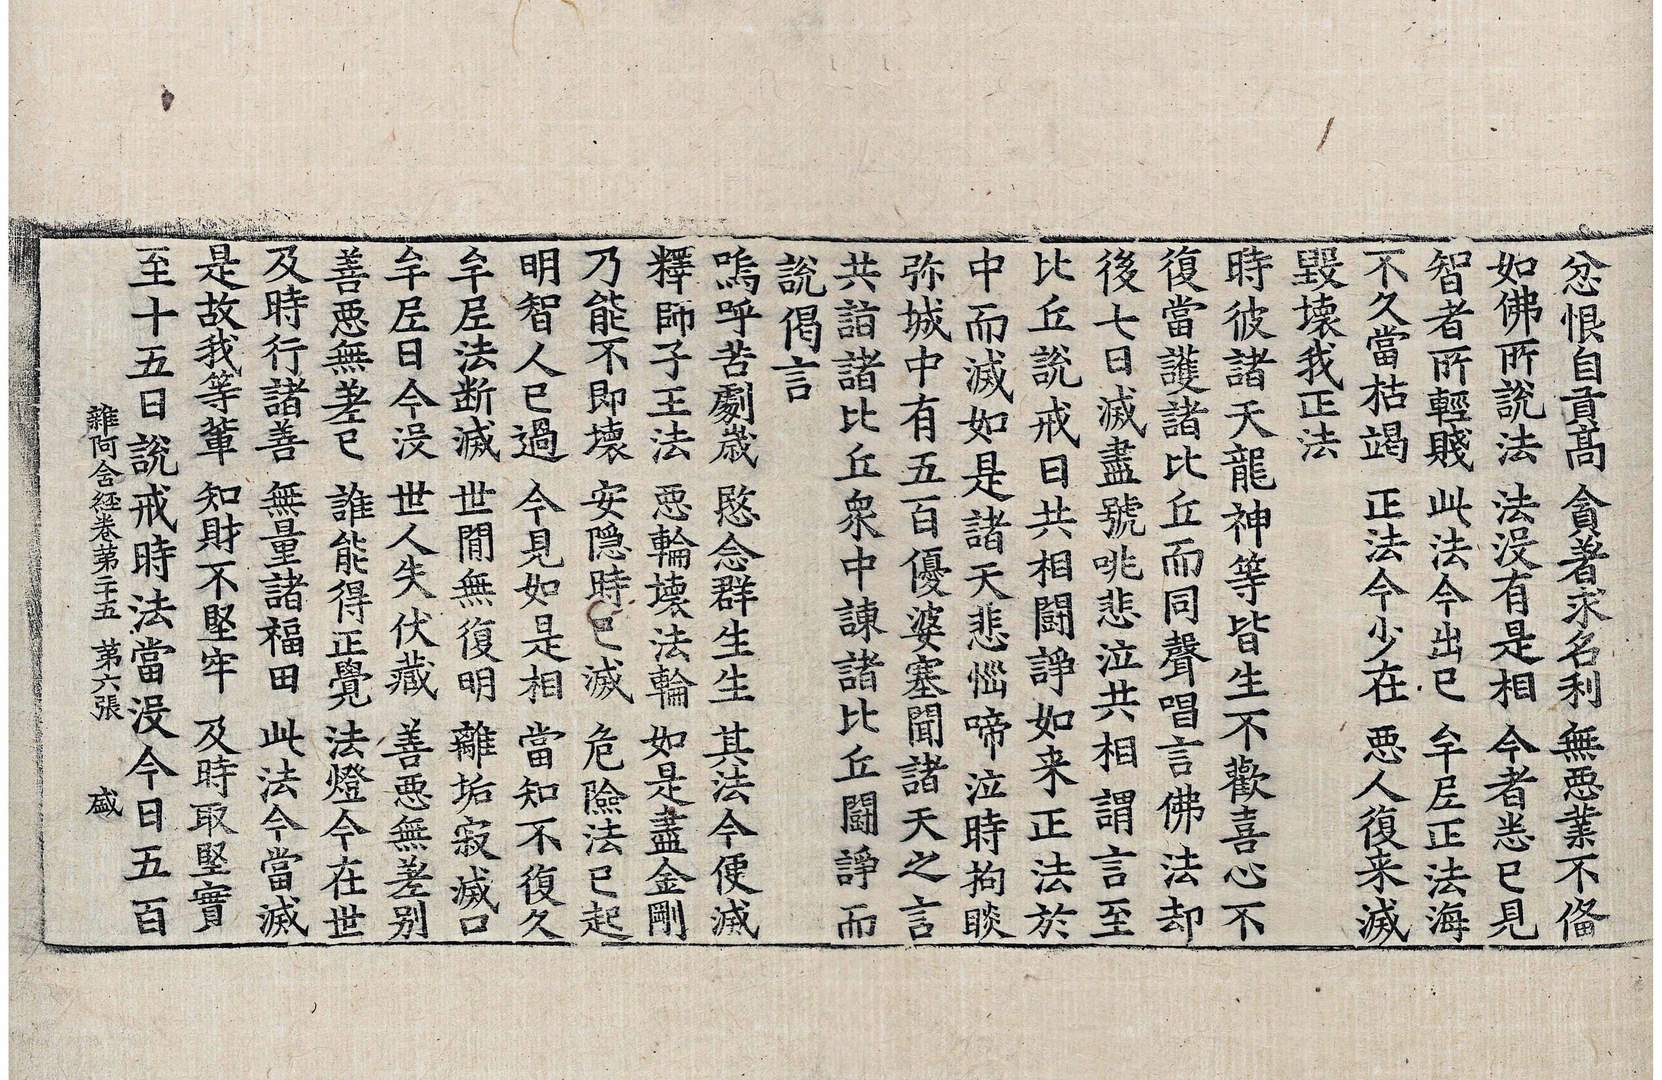 忿恨自貢髙　貪著求名利　無惡業不俻
如佛所說法　法没有是相　今者悉已見
智者所輕賤　此法今出已　牟尼正法海
不久當枯竭　正法今少在　惡人復来滅
毀壞我正法
時彼諸天龍神等皆生不歡喜心不
復當護諸比丘而同聲唱言佛法却
後七日滅盡號咷悲泣共相謂言至
比丘說戒日共相鬪諍如来正法於
中而滅如是諸天悲惱啼泣時拘睒
弥城中有五百優婆塞聞諸天之言
共詣諸比丘衆中諫諸比丘鬪諍而
說偈言
嗚呼苦劇歳　愍念群生生　其法今便滅
釋師子王法　惡輪壞法輪　如是盡金剛
乃能不即壞　安隱時已滅　危險法已起
明智人已過　今見如是相　當知不復久
牟尼法断滅　世間無復明　離垢寂滅口
牟尼日今没　世人失伏藏　善惡無差别
善惡無差已　誰能得正覺　法燈今在世
及時行諸善　無量諸福田　此法今當滅
是故我等輩　知財不堅牢　及時取堅實
至十五日說戒時法當没今日五百
雜阿含經卷第二十五　第六張　盛